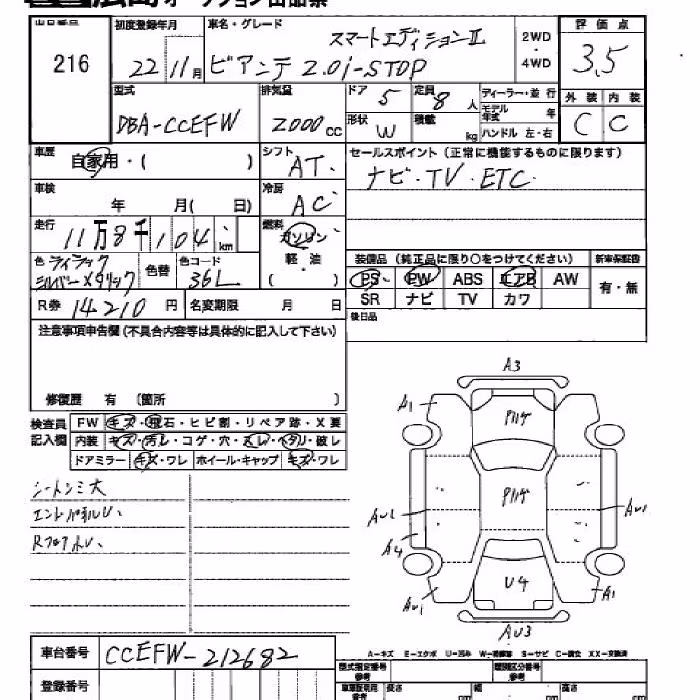 広島 オークション出品票
出品番号 初度登録年月 車名・グレード スマートエディションⅡ 2WD・4WD 評価点
216 22 11月 ビアンテ 2.0i-STOP 3.5
型式 DBA-CCEFW 排気量 2000cc ドア 5 定員 8人 ディーラー・並行 外装 内装
形状 W 積載 kg モデル年式 年 ハンドル 左・右 C C
車歴 自家用・( ) シフト AT. セールスポイント(正常に機能するものに限ります)
ナビ・TV・ETC.
車検 年 月( 日) 冷房 AC
走行 11万8千104km 燃料 ガソリン 軽・油 ( )
色 ライラックシルバーメタリック 色替 色コード 36L
装備品(純正品に限り○をつけてください) 新車保証書
PS PW ABS エアB AW 有・無
SR ナビ TV カワ
R券 14210円 名変期限 月 日
後日品
注意事項申告欄(不具合内容等は具体的に記入して下さい)
修復歴 有 (箇所 )
検査員記入欄 FW キズ・飛石・ヒビ割・リペア跡・X要
内装 キズ・汚レ・コゲ・穴・スレ・ヘタリ・破レ
ドアミラー キズ・ワレ ホイール・キャップ キズ・ワレ
シートシミ大
エンドパネルU、
RフロアホU、
A3
A1
Pハゲ
Pハゲ
AU2
AU1
A4
U4
AU1
A1
AU3
A-キズ E-エクボ U-凹み W-補修跡 S-サビ C-腐食 XX-交換済
車台番号 CCEFW-212682
登録番号
型式指定番号 参考 類別区分番号 参考
車庫証明用 参考 長さ cm 幅 cm 高さ cm